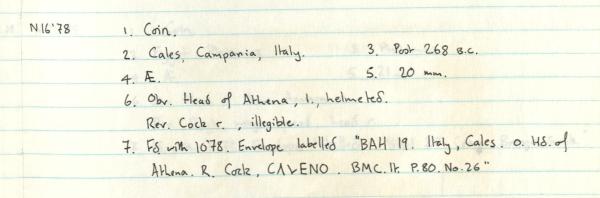 N16'78 1. Coin.
2. Cales, Campania, Italy. 3. Post 268 B.C.
4. Æ. 5. 20 mm.
6. Obv. Head of Athena, l., helmeted.
Rev. Cock r., illegible.
7. Fd with 10'78. Envelope labelled "BAH 19. Italy, Cales. O. Hd. of
Athena. R. Cock, CΛVENO. BMC. It. P.80. No.26"